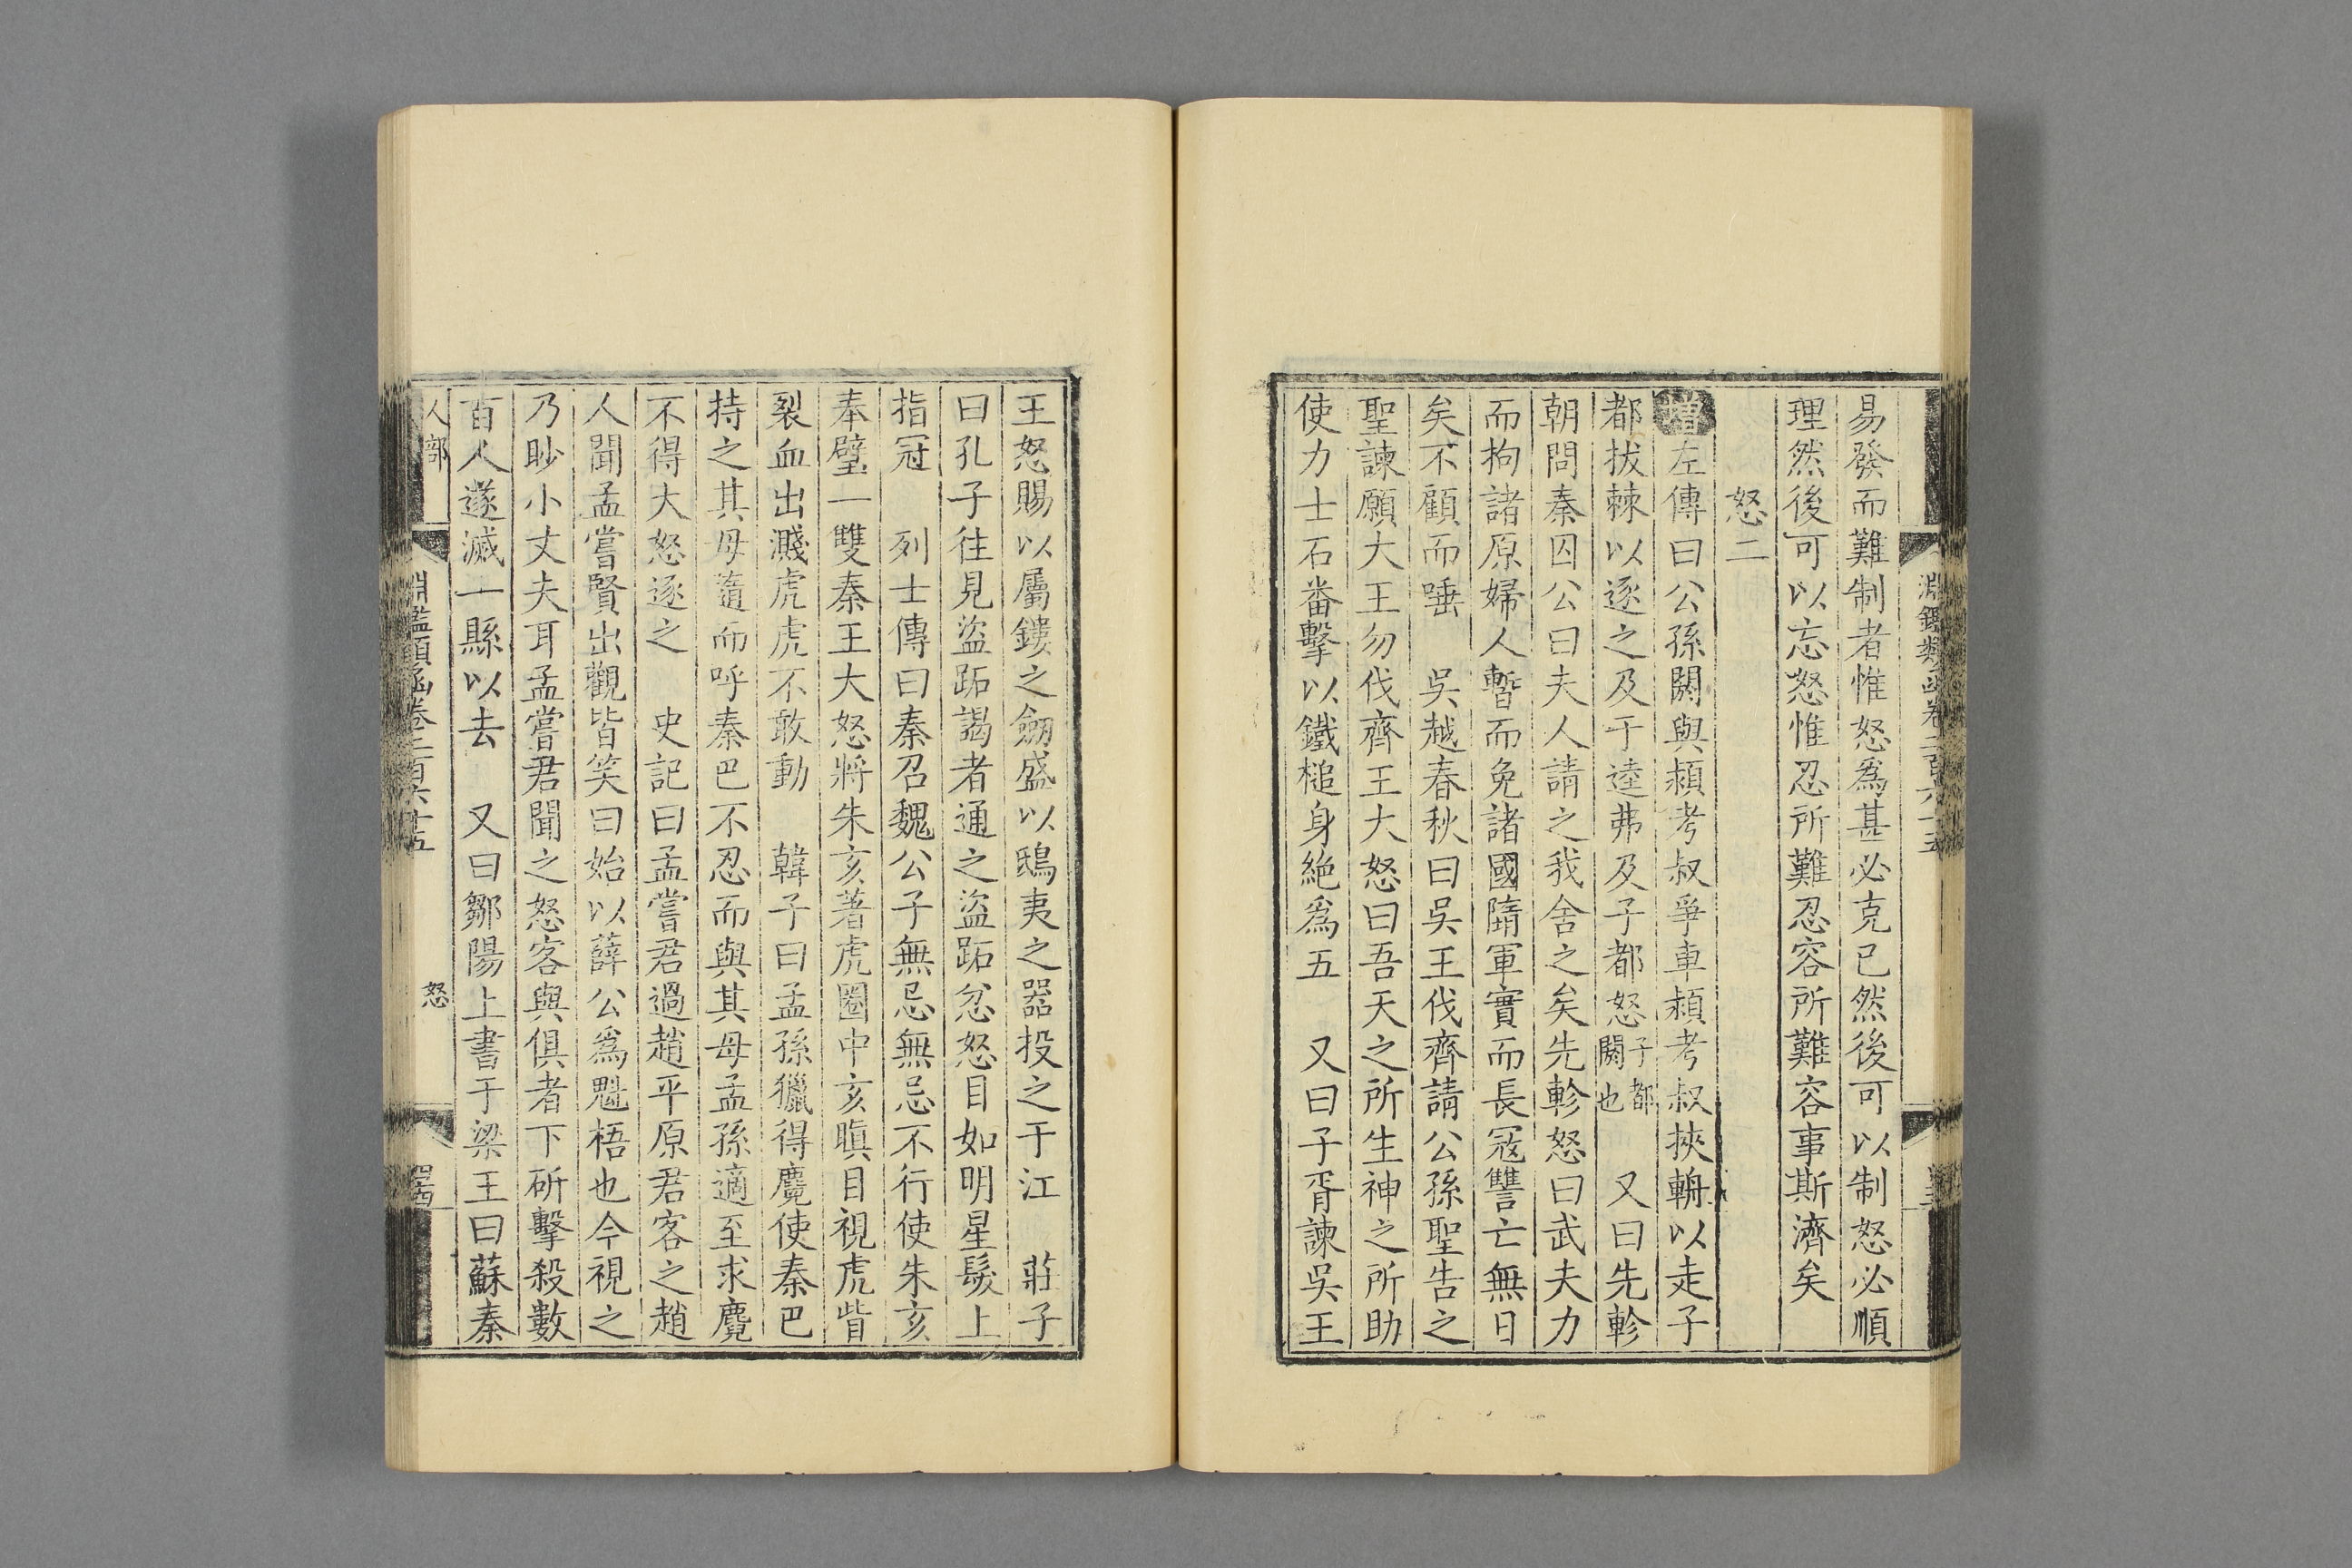 易發而難制者惟怒爲甚必克已然後可以制怒必順
理然後可以忘怒惟忍所難忍容所難容事斯濟矣
怒二
增左傳曰公孫閼與頴考叔爭車頴考叔挾輈以走子
都拔棘以逐之及于逵弗及子都怒子都閼也　又曰先軫
朝問秦囚公曰夫人請之我舍之矣先軫怒曰武夫力
而拘諸原婦人暫而免諸國隳軍實而長寇讐亡無日
矣不顧而唾　吳越春秋曰吳王伐齊請公孫聖告之
聖諫願大王勿伐齊王大怒曰吾天之所生神之所助
使力士石番擊以鐵槌身絶爲五　又曰子胥諫吳王
王怒賜以屬鏤之劒盛以鴟夷之器投之于江　莊子
曰孔子往見盜跖謁者通之盜跖忿怒目如明星髮上
指冠　列士傳曰秦召魏公子無忌無忌不行使朱亥
奉璧一雙秦王大怒將朱亥著虎圈中亥瞋目視虎眥
裂血出濺虎虎不敢動　韓子曰孟孫獵得麑使秦巴
持之其母隨而呼秦巴不忍而與其母孟孫適至求麑
不得大怒逐之　史記曰孟嘗君過趙平原君客之趙
人聞孟嘗賢出觀皆笑曰始以薛公爲魁梧也今視之
乃眇小丈夫耳孟嘗君聞之怒客與俱者下斫擊殺數
百人遂滅一縣以去　又曰鄒陽上書于梁王曰蘇秦
人部
淵鑑類函卷二百六十五
怒